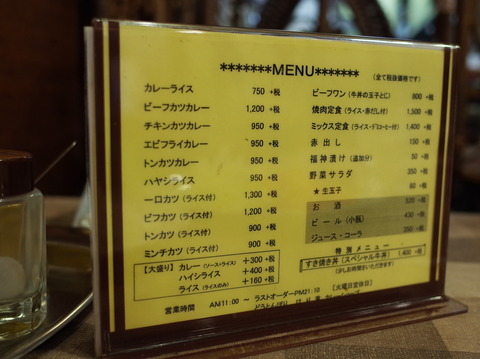 *******MENU*******
(全て税抜価格です)
カレーライス 750 +税
ビーフカツカレー 1,200 +税
チキンカツカレー 950 +税
エビフライカレー 950 +税
トンカツカレー 950 +税
ハヤシライス 950 +税
一口カツ (ライス付) 1,300 +税
ビフカツ (ライス付) 1,200 +税
トンカツ (ライス付) 900 +税
ミンチカツ (ライス付) 900 +税
【大盛り】カレー (ソース・ライス) +300 +税
ハイシライス +400 +税
ライス (ライスのみ) +160 +税
ビーフワン (牛丼の玉子とじ) 800 +税
焼肉定食 (ライス・赤だし付) 1,500 +税
ミックス定食 (ライス・デミコーヒー付) 1,400 +税
赤出し 150 +税
福神漬け (追加分) 50 +税
野菜サラダ 350 +税
★ 生玉子 60 +税
お酒 520 +税
ビール (小瓶) 430 +税
ジュース・コーラ 350 +税
特別メニュー
すき焼き丼 (スペシャル牛丼) 1,400 +税
(少しお時間をいただきます)
営業時間 AM11:00 ～ ラストオーダーPM21:10 【火曜日定休日】